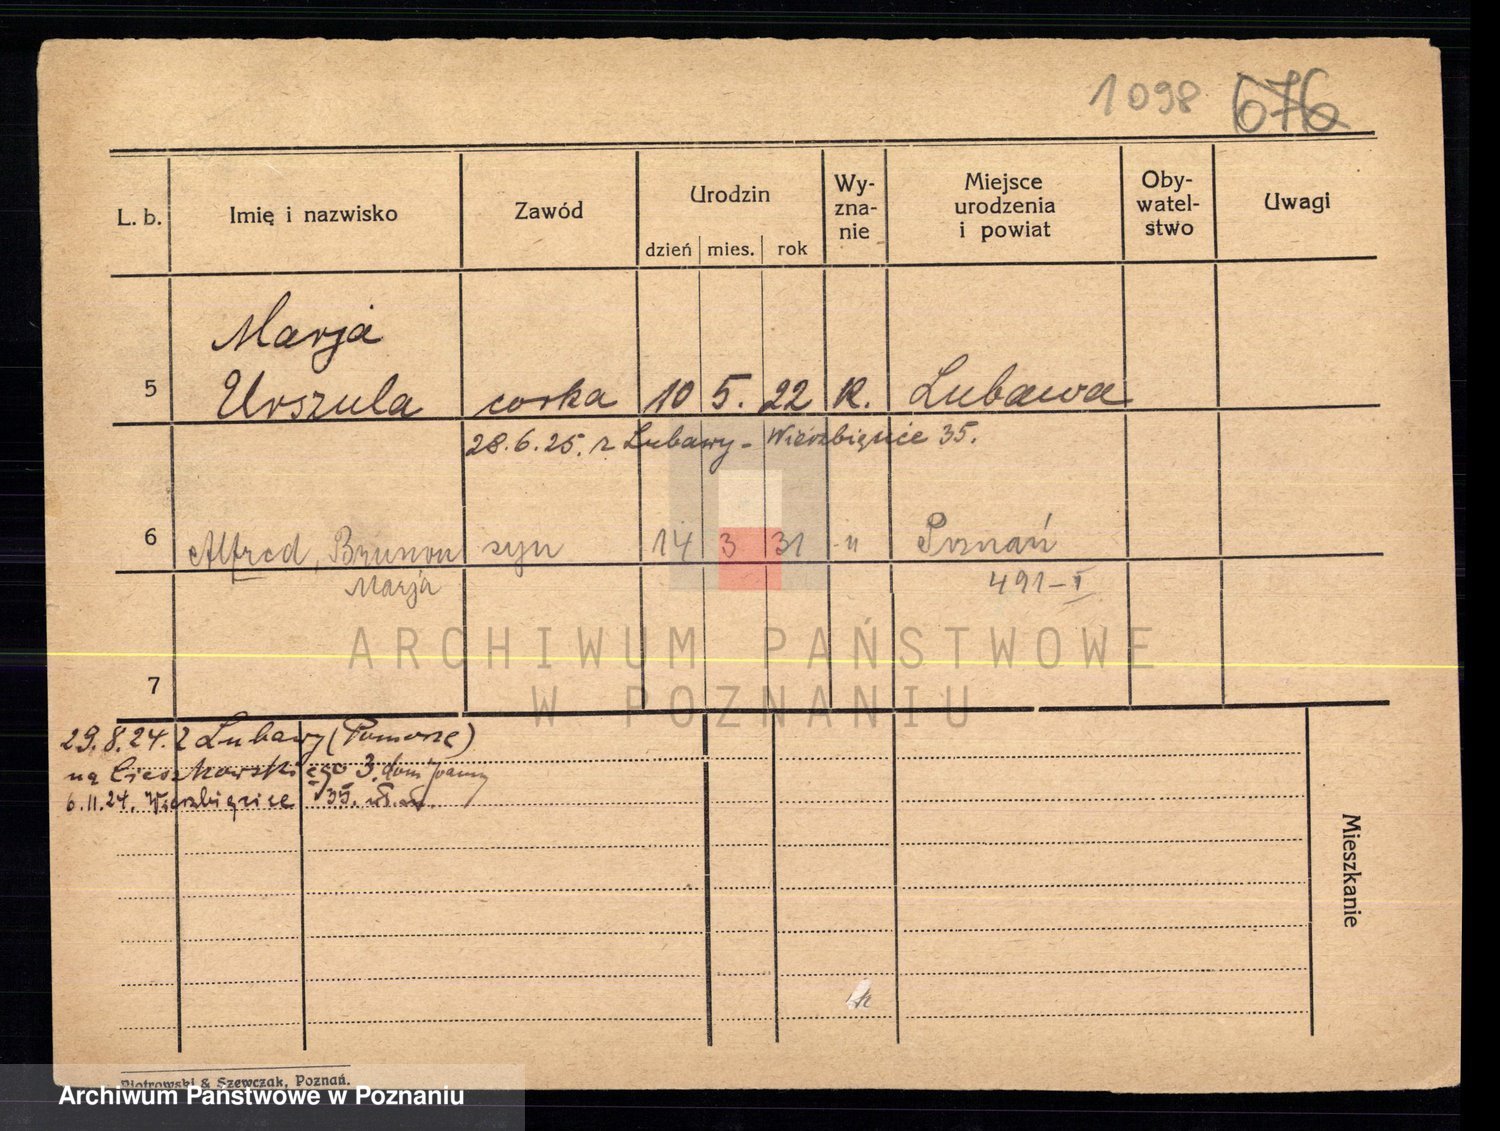 1098 676
L. b. Imię i nazwisko Zawód Urodzin Wy-zna-nie Miejsce urodzenia i powiat Oby-watel-stwo Uwagi
dzień mies. rok
Marja
5 Urszula corka 10 5. 22 K. Lubawa
28.6.25. z Lubawy - Wierzbięcice 35.
6 Alfred, Brunon syn 14 3 31 -"- Poznań
Marja 491-I
ARCHIWUM PAŃSTWOWE
7
W POZNANIU
29.8.24. z Lubawy (Pomorze)
na Cieszkowskiego 3. dom
6.11.24. Wierzbięcice 35.
Mieszkanie
Piotrowski & Szewczak, Poznań.
Archiwum Państwowe w Poznaniu